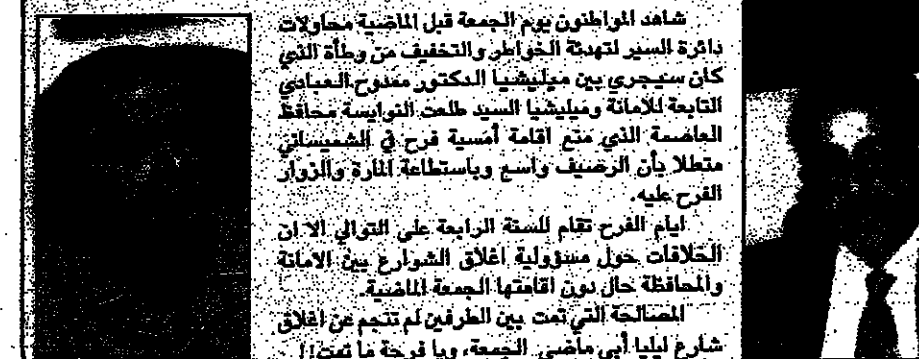 شاهد المواطنون يوم الجمعة قبل الماضية محاولات
دائرة السير لتهدئة الخواطر والتخفيف من وطأة الذي
كان سيجري بين ميليشيا الدكتور ممدوح العبادي
التابعة للامانة وميليشيا السيد طلعت النوايسة محافظ
العاصمة الذي منع اقامة أمسية فرح في الشميساني
متعللا بأن الرصيف واسع وباستطاعة المارة والزوار
الفرح عليه.
ايام الفرح تقام للسنة الرابعة على التوالي الا ان
الخلافات حول مسؤولية اغلاق الشوارع بين الامانة
والمحافظة حال دون اقامتها الجمعة الماضية.
المصالحة التي تمت بين الطرفين لم تنجم عن اغلاق
شارع ايليا أبي ماضي الجمعة، ويا فرحة ما تمت!!